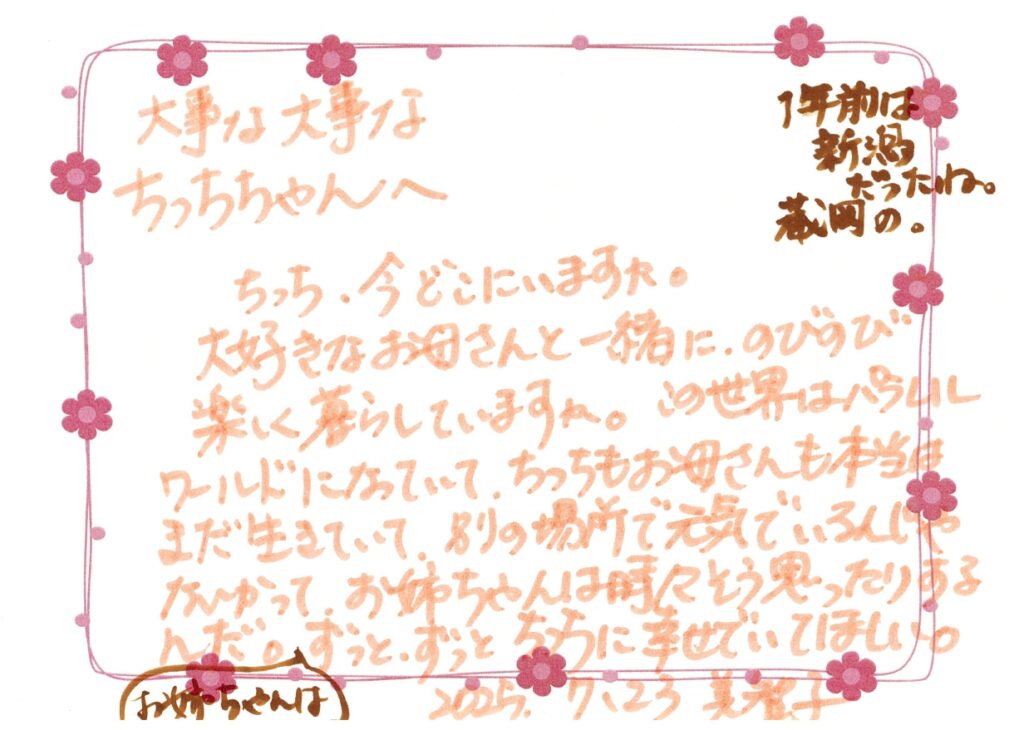 大事な大事な
ちっちちゃんへ
1年前は
新潟
だったね。
蔵岡の。
ちっち、今どこにいますか。
大好きなお母さんと一緒に、のびのび
楽しく暮らしていますか。この世界はパラレル
ワールドになっていて、ちっちもお母さんも本当は
まだ生きていて、別の場所で元気でいるんじゃ
ないかって、お姉ちゃんは時々そう思ったりする
んだ。ずっと、ずっとちっちに幸せでいてほしい。
2025.7.23 美智子
お姉ちゃんは